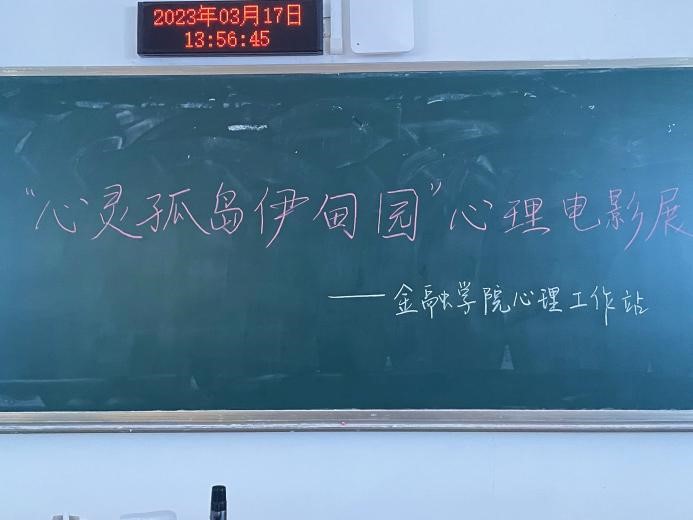 2023年03月17日
13:56:45
“心灵孤岛伊甸园”心理电影展
——金融学院心理工作站